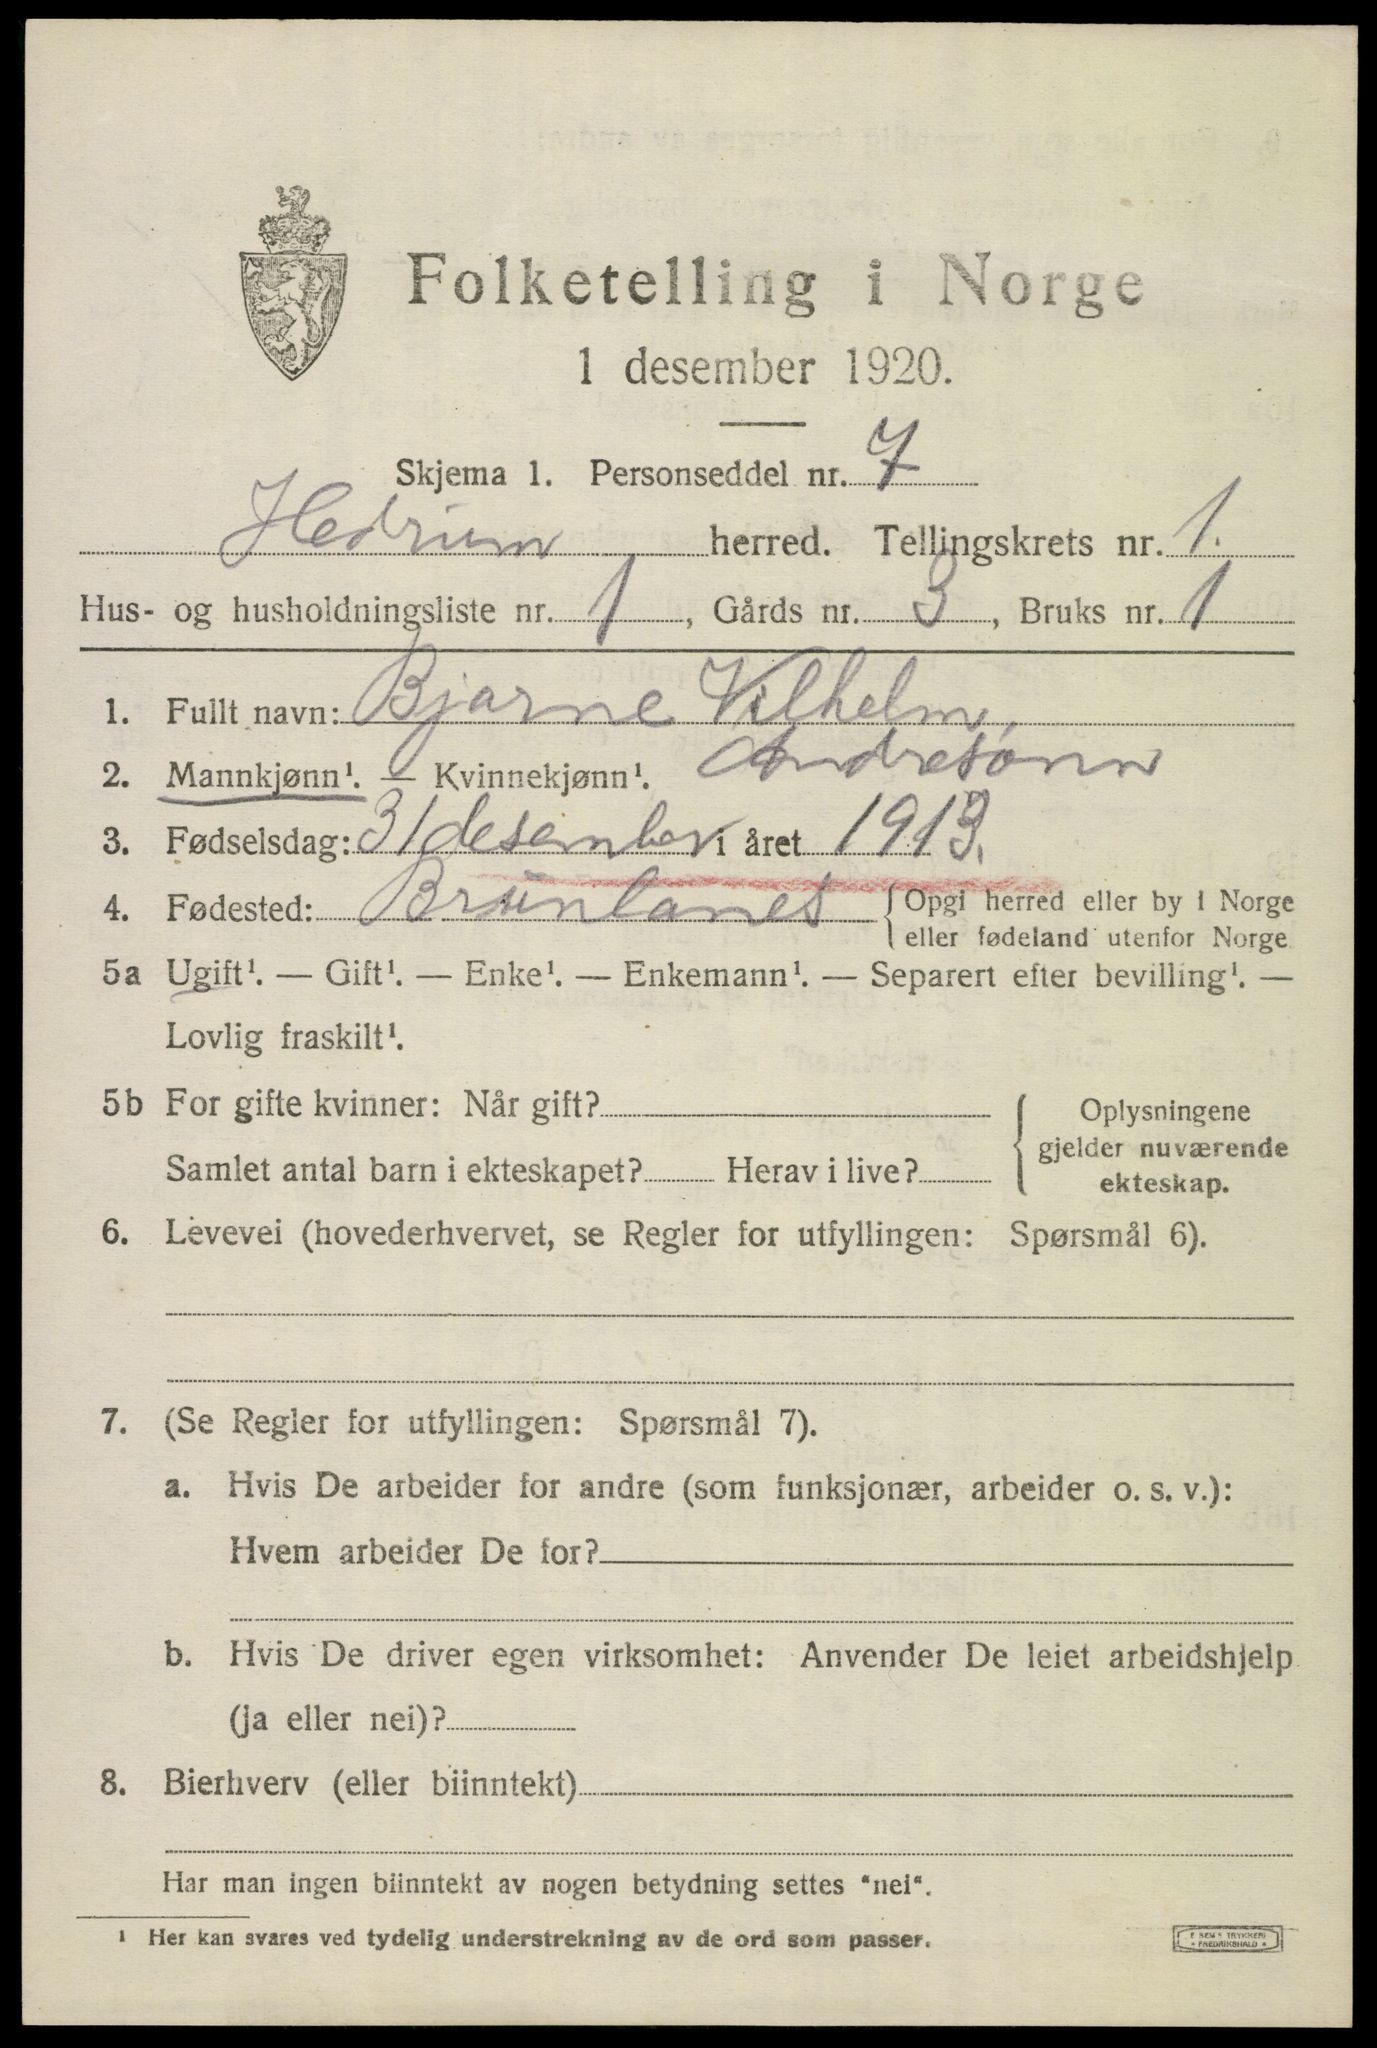 Folketelling i Norge
1 desember 1920.
Skjema 1. Personseddel nr. 7
Hedrum herred. Tellingskrets nr. 1.
Hus- og husholdningsliste nr. 1, Gårds nr. 3, Bruks nr. 1
1. Fullt navn: Bjarne Vilhelm,
2. Mannkjønn¹. — Kvinnekjønn¹. Andresønn
3. Fødselsdag: 31 desember i året 1913.
4. Fødested: Brunlanes { Opgi herred eller by i Norge
eller fødeland utenfor Norge
5a Ugift¹. — Gift¹. — Enke¹. — Enkemann¹. — Separert efter bevilling¹. —
Lovlig fraskilt¹.
5b For gifte kvinner: Når gift? { Oplysningene
gjelder nuværende
Samlet antal barn i ekteskapet? Herav i live? ekteskap.
6. Levevei (hovederhvervet, se Regler for utfyllingen: Spørsmål 6).
7. (Se Regler for utfyllingen: Spørsmål 7).
a. Hvis De arbeider for andre (som funksjonær, arbeider o. s. v.):
Hvem arbeider De for?
b. Hvis De driver egen virksomhet: Anvender De leiet arbeidshjelp
(ja eller nei)?
8. Bierhverv (eller biinntekt)
Har man ingen biinntekt av nogen betydning settes "nei".
¹ Her kan svares ved tydelig understrekning av de ord som passer.
E SEM'S TRYKKERI
* FREDRIKSHALD *